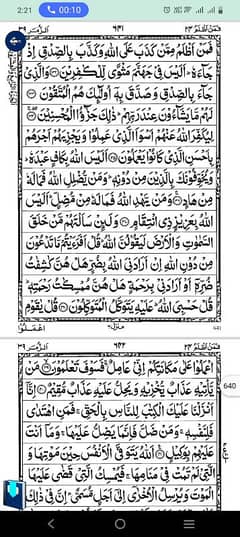 2:21
00:10
93
فَمَنْ اَظْلَمُ ٢٤
٦٤١
اَلزُّمَر ٣٩
فَمَنْ اَظْلَمُ مِمَّنْ كَذَبَ عَلَى اللّٰهِ وَكَذَّبَ بِالصِّدْقِ اِذْ
جَآءَهٗ ؕ اَلَيْسَ فِيْ جَهَنَّمَ مَثْوًى لِّلْكٰفِرِيْنَ ۝ وَالَّذِيْ
جَآءَ بِالصِّدْقِ وَصَدَّقَ بِهٖۤ اُولٰٓئِكَ هُمُ الْمُتَّقُوْنَ ۝
لَهُمْ مَّا يَشَآءُوْنَ عِنْدَ رَبِّهِمْ ؕ ذٰلِكَ جَزٰٓؤُا الْمُحْسِنِيْنَ ۝
لِيُكَفِّرَ اللّٰهُ عَنْهُمْ اَسْوَاَ الَّذِيْ عَمِلُوْا وَيَجْزِيَهُمْ اَجْرَهُمْ
بِاَحْسَنِ الَّذِيْ كَانُوْا يَعْمَلُوْنَ ۝ اَلَيْسَ اللّٰهُ بِكَافٍ عَبْدَهٗ ؕ
وَيُخَوِّفُوْنَكَ بِالَّذِيْنَ مِنْ دُوْنِهٖ ؕ وَمَنْ يُّضْلِلِ اللّٰهُ فَمَا لَهٗ
مِنْ هَادٍ ۝ وَمَنْ يَّهْدِ اللّٰهُ فَمَا لَهٗ مِنْ مُّضِلٍّ ؕ اَلَيْسَ
اللّٰهُ بِعَزِيْزٍ ذِي انْتِقَامٍ ۝ وَلَئِنْ سَاَلْتَهُمْ مَّنْ خَلَقَ
السَّمٰوٰتِ وَالْاَرْضَ لَيَقُوْلُنَّ اللّٰهُ ؕ قُلْ اَفَرَءَيْتُمْ مَّا تَدْعُوْنَ
مِنْ دُوْنِ اللّٰهِ اِنْ اَرَادَنِيَ اللّٰهُ بِضُرٍّ هَلْ هُنَّ كٰشِفٰتُ
ضُرِّهٖۤ اَوْ اَرَادَنِيْ بِرَحْمَةٍ هَلْ هُنَّ مُمْسِكٰتُ رَحْمَتِهٖ ؕ
قُلْ حَسْبِيَ اللّٰهُ ؕ عَلَيْهِ يَتَوَكَّلُ الْمُتَوَكِّلُوْنَ ۝ قُلْ يٰقَوْمِ
اعْمَلُوْا
فَمَنْ اَظْلَمُ ٢٤
٦٤٢
اَلزُّمَر ٣٩
640
اعْمَلُوْا عَلٰى مَكَانَتِكُمْ اِنِّيْ عَامِلٌ ۚ فَسَوْفَ تَعْلَمُوْنَ ۝ مَنْ
يَّاْتِيْهِ عَذَابٌ يُّخْزِيْهِ وَيَحِلُّ عَلَيْهِ عَذَابٌ مُّقِيْمٌ ۝ اِنَّاۤ
اَنْزَلْنَا عَلَيْكَ الْكِتٰبَ لِلنَّاسِ بِالْحَقِّ ۚ فَمَنِ اهْتَدٰى
فَلِنَفْسِهٖ ۚ وَمَنْ ضَلَّ فَاِنَّمَا يَضِلُّ عَلَيْهَا ۚ وَمَاۤ اَنْتَ
عَلَيْهِمْ بِوَكِيْلٍ ۝ اَللّٰهُ يَتَوَفَّى الْاَنْفُسَ حِيْنَ مَوْتِهَا وَ
الَّتِيْ لَمْ تَمُتْ فِيْ مَنَامِهَا ۚ فَيُمْسِكُ الَّتِيْ قَضٰى عَلَيْهَا
الْمَوْتَ وَيُرْسِلُ الْاُخْرٰۤى اِلٰۤى اَجَلٍ مُّسَمًّى ؕ اِنَّ فِيْ ذٰلِكَ